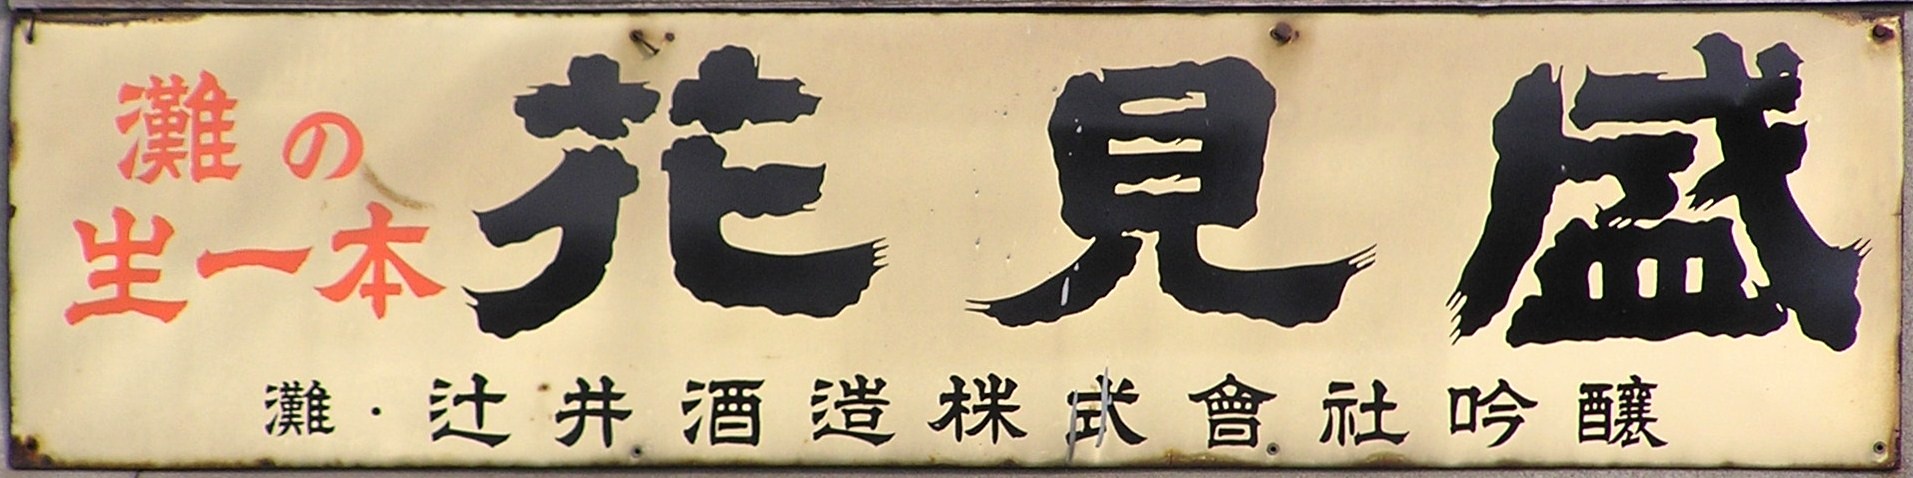 灘の
生一本
花見盛
灘・辻井酒造株式會社吟醸